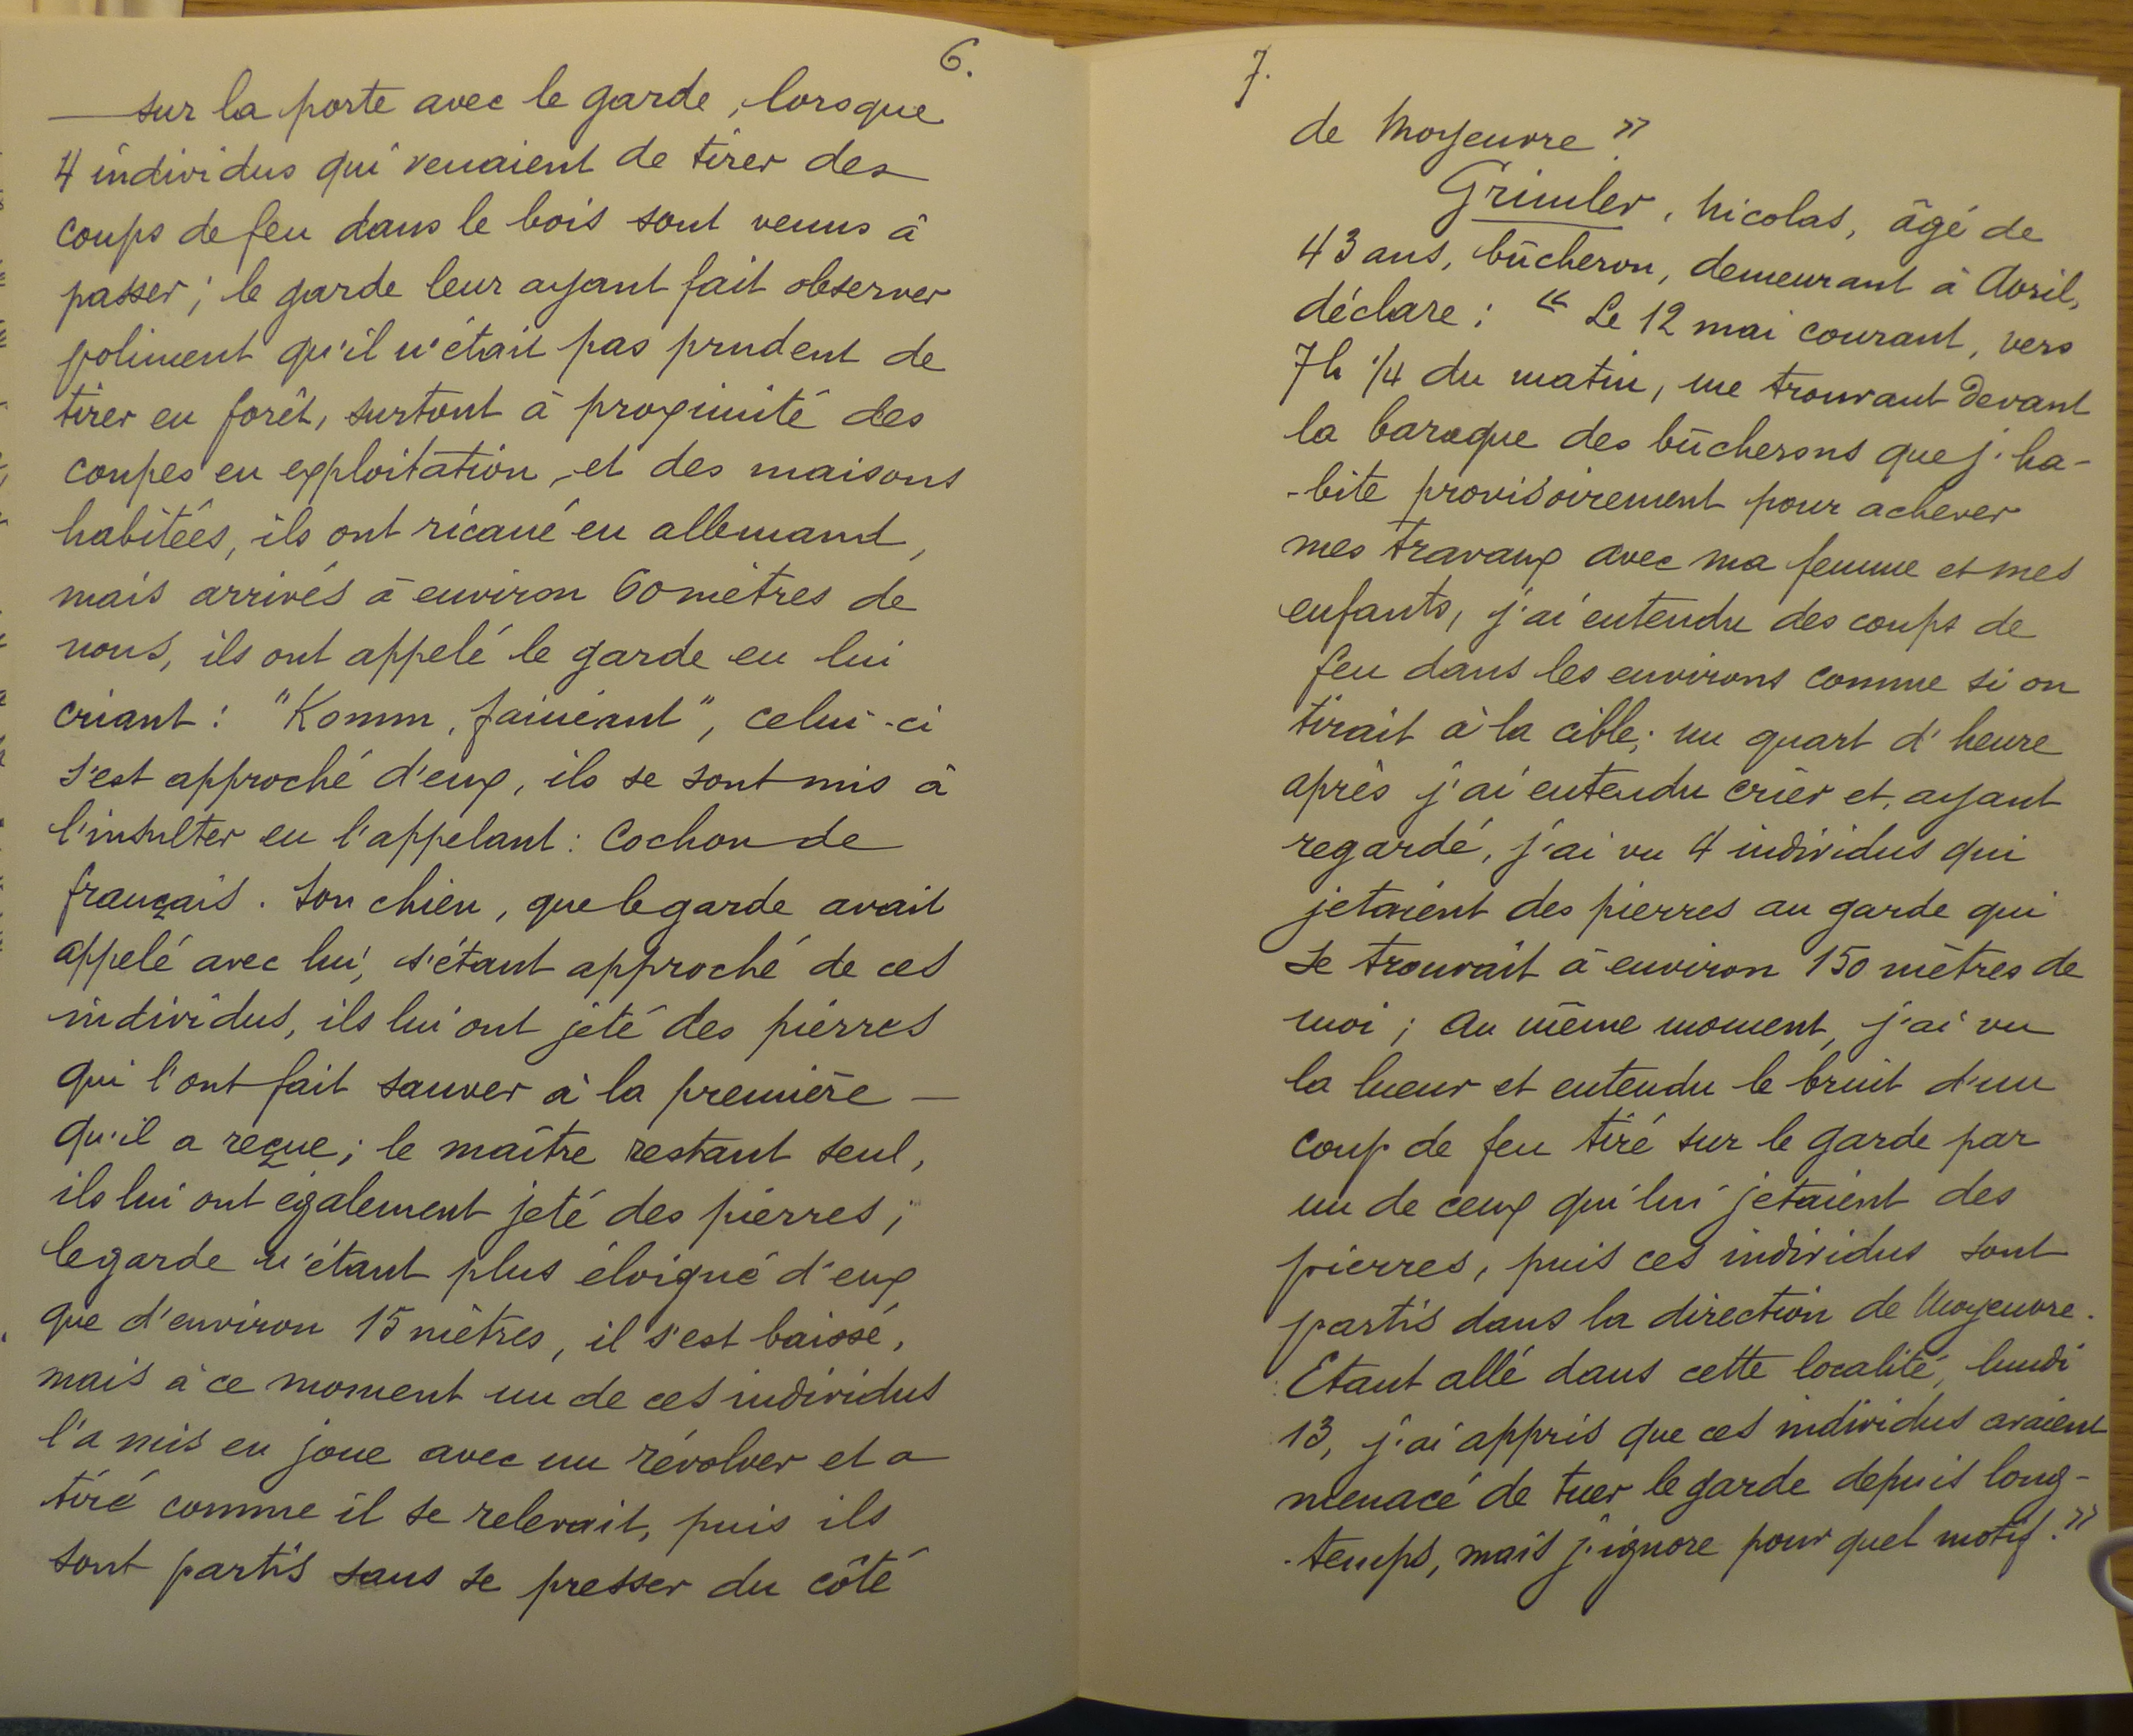 6.
sur la porte avec le garde, lorsque
4 individus qui venaient de tirer des
coups de feu dans le bois sont venus à
passer ; le garde leur ayant fait observer
poliment qu'il n'était pas prudent de
tirer en forêt, surtout à proximité des
coupes en exploitation, et des maisons
habitées, ils ont ricané en allemand,
mais arrivés à environ 60 mètres de
nous, ils ont appelé le garde en lui
criant : "Komm, fainéant", celui-ci
s'est approché d'eux, ils se sont mis à
l'insulter en l'appelant : Cochon de
français. Son chien, que le garde avait
appelé avec lui, s'étant approché de ces
individus, ils lui ont jeté des pierres
qui l'ont fait sauver à la première —
qu'il a reçue ; le maître restant seul,
ils lui ont également jeté des pierres ;
le garde n'étant plus éloigné d'eux
que d'environ 15 mètres, il s'est baissé,
mais à ce moment un de ces individus
l'a mis en joue avec un révolver et a
tiré comme il se relevait, puis ils
sont partis sans se presser du côté
7.
de Moyeuvre »
Grimler, Nicolas, âgé de
43 ans, bûcheron, demeurant à Avril,
déclare : « Le 12 mai courant, vers
7h 1/4 du matin, me trouvant devant
la baraque des bûcherons que j'ha-
-bite provisoirement pour achever
mes travaux avec ma femme et mes
enfants, j'ai entendu des coups de
feu dans les environs comme si on
tirait à la cible ; un quart d'heure
après j'ai entendu crier et, ayant
regardé, j'ai vu 4 individus qui
jetaient des pierres au garde qui
se trouvait à environ 150 mètres de
moi ; au même moment, j'ai vu
la lueur et entendu le bruit d'un
coup de feu tiré sur le garde par
un de ceux qui lui jetaient des
pierres, puis ces individus sont
partis dans la direction de Moyeuvre.
Etant allé dans cette localité, lundi
13, j'ai appris que ces individus avaient
menacé de tuer le garde depuis long-
-temps, mais j'ignore pour quel motif. »